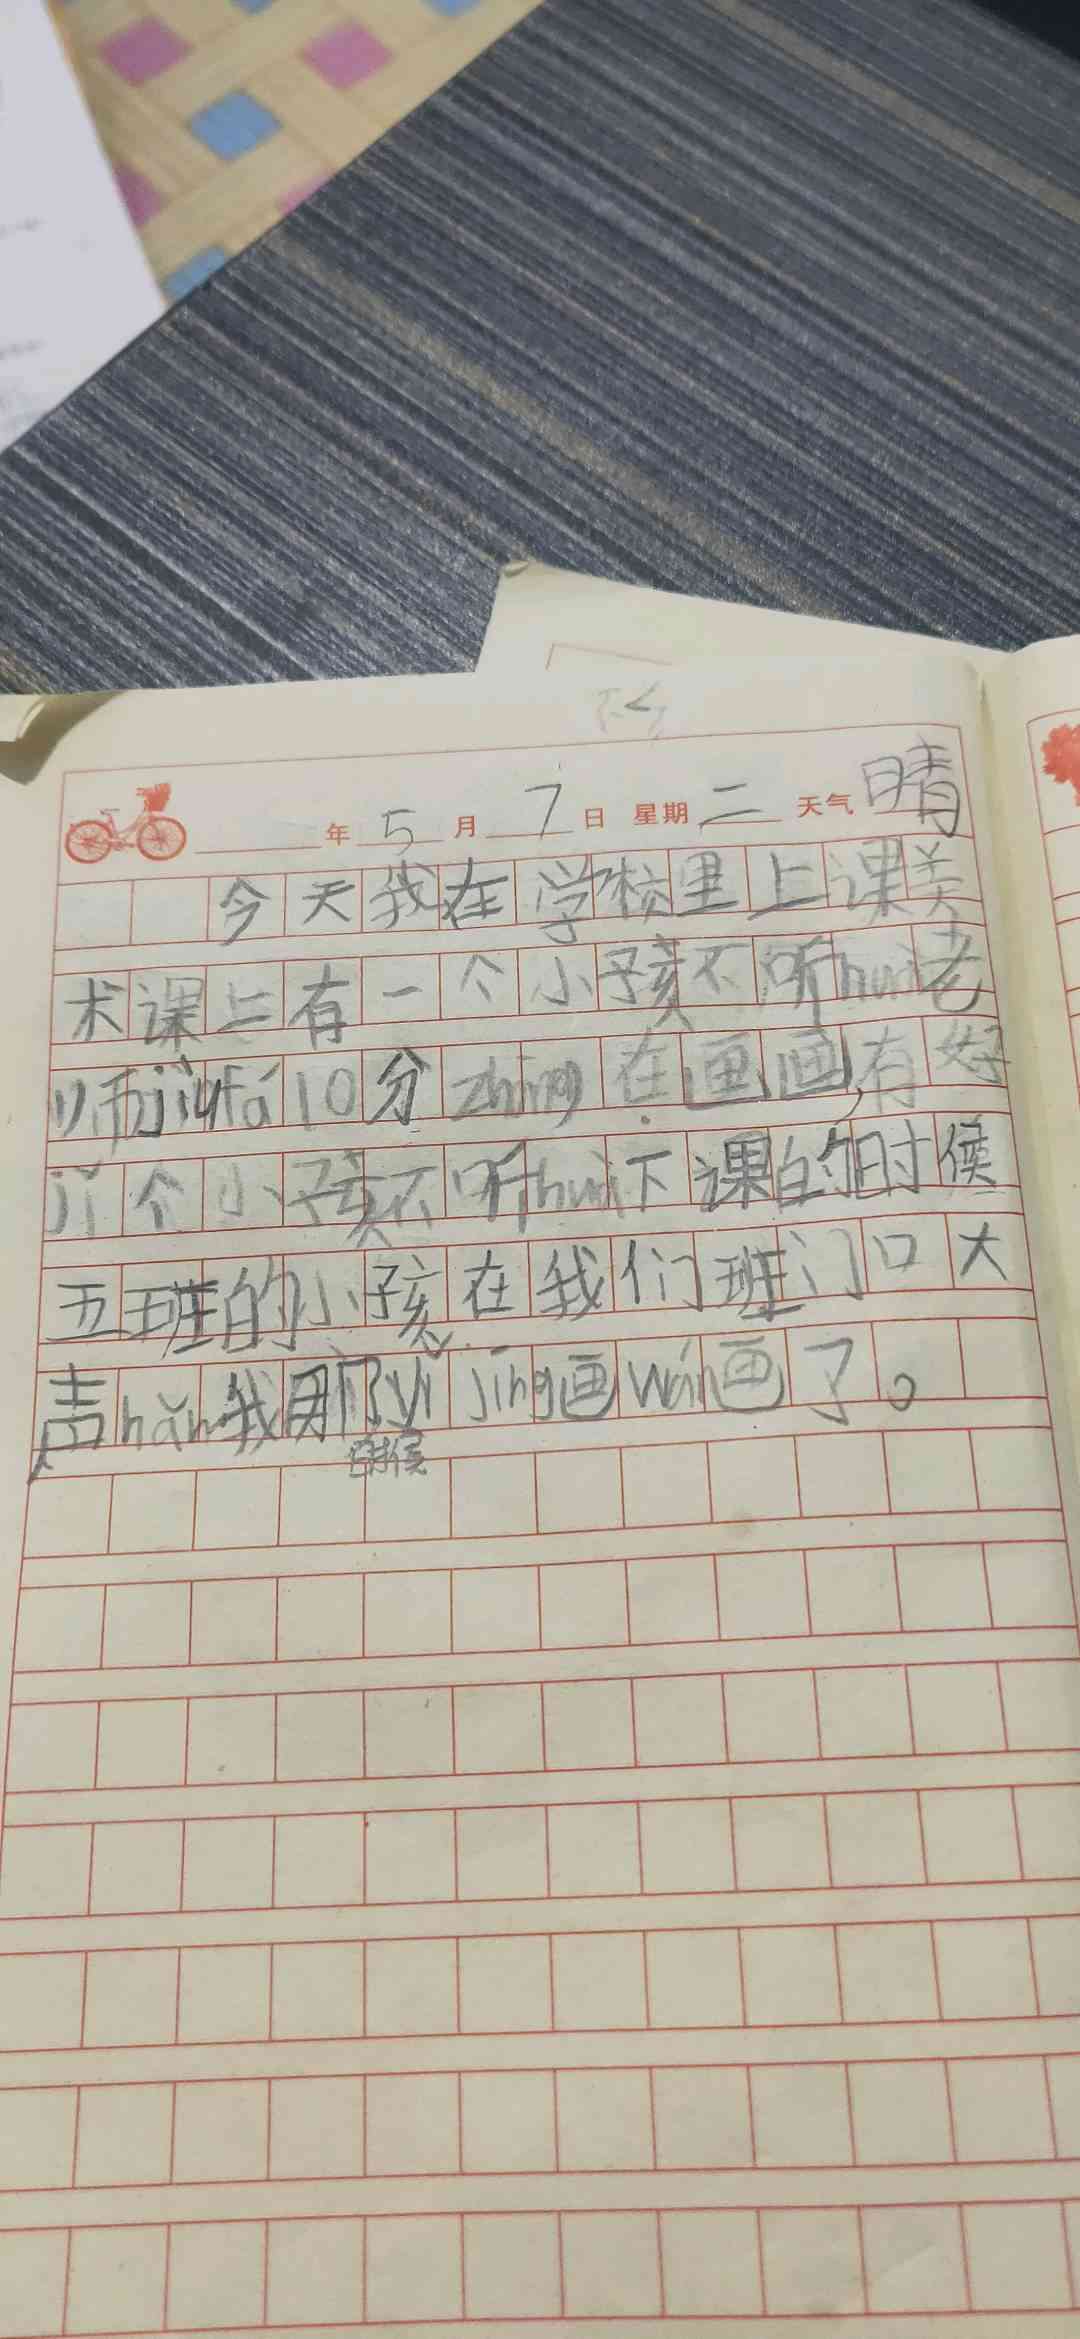 年 5 月 7 日 星期 二 天气 晴
今天我在学校里上课美
术课上有一个小孩不听huà老
师jiùfá10分zhōng在画画,有好
jǐ个小孩不听huà下课的时候
五班的小孩在我们班门口大
声hǎn我那yǐjīng画wán画了。
时候